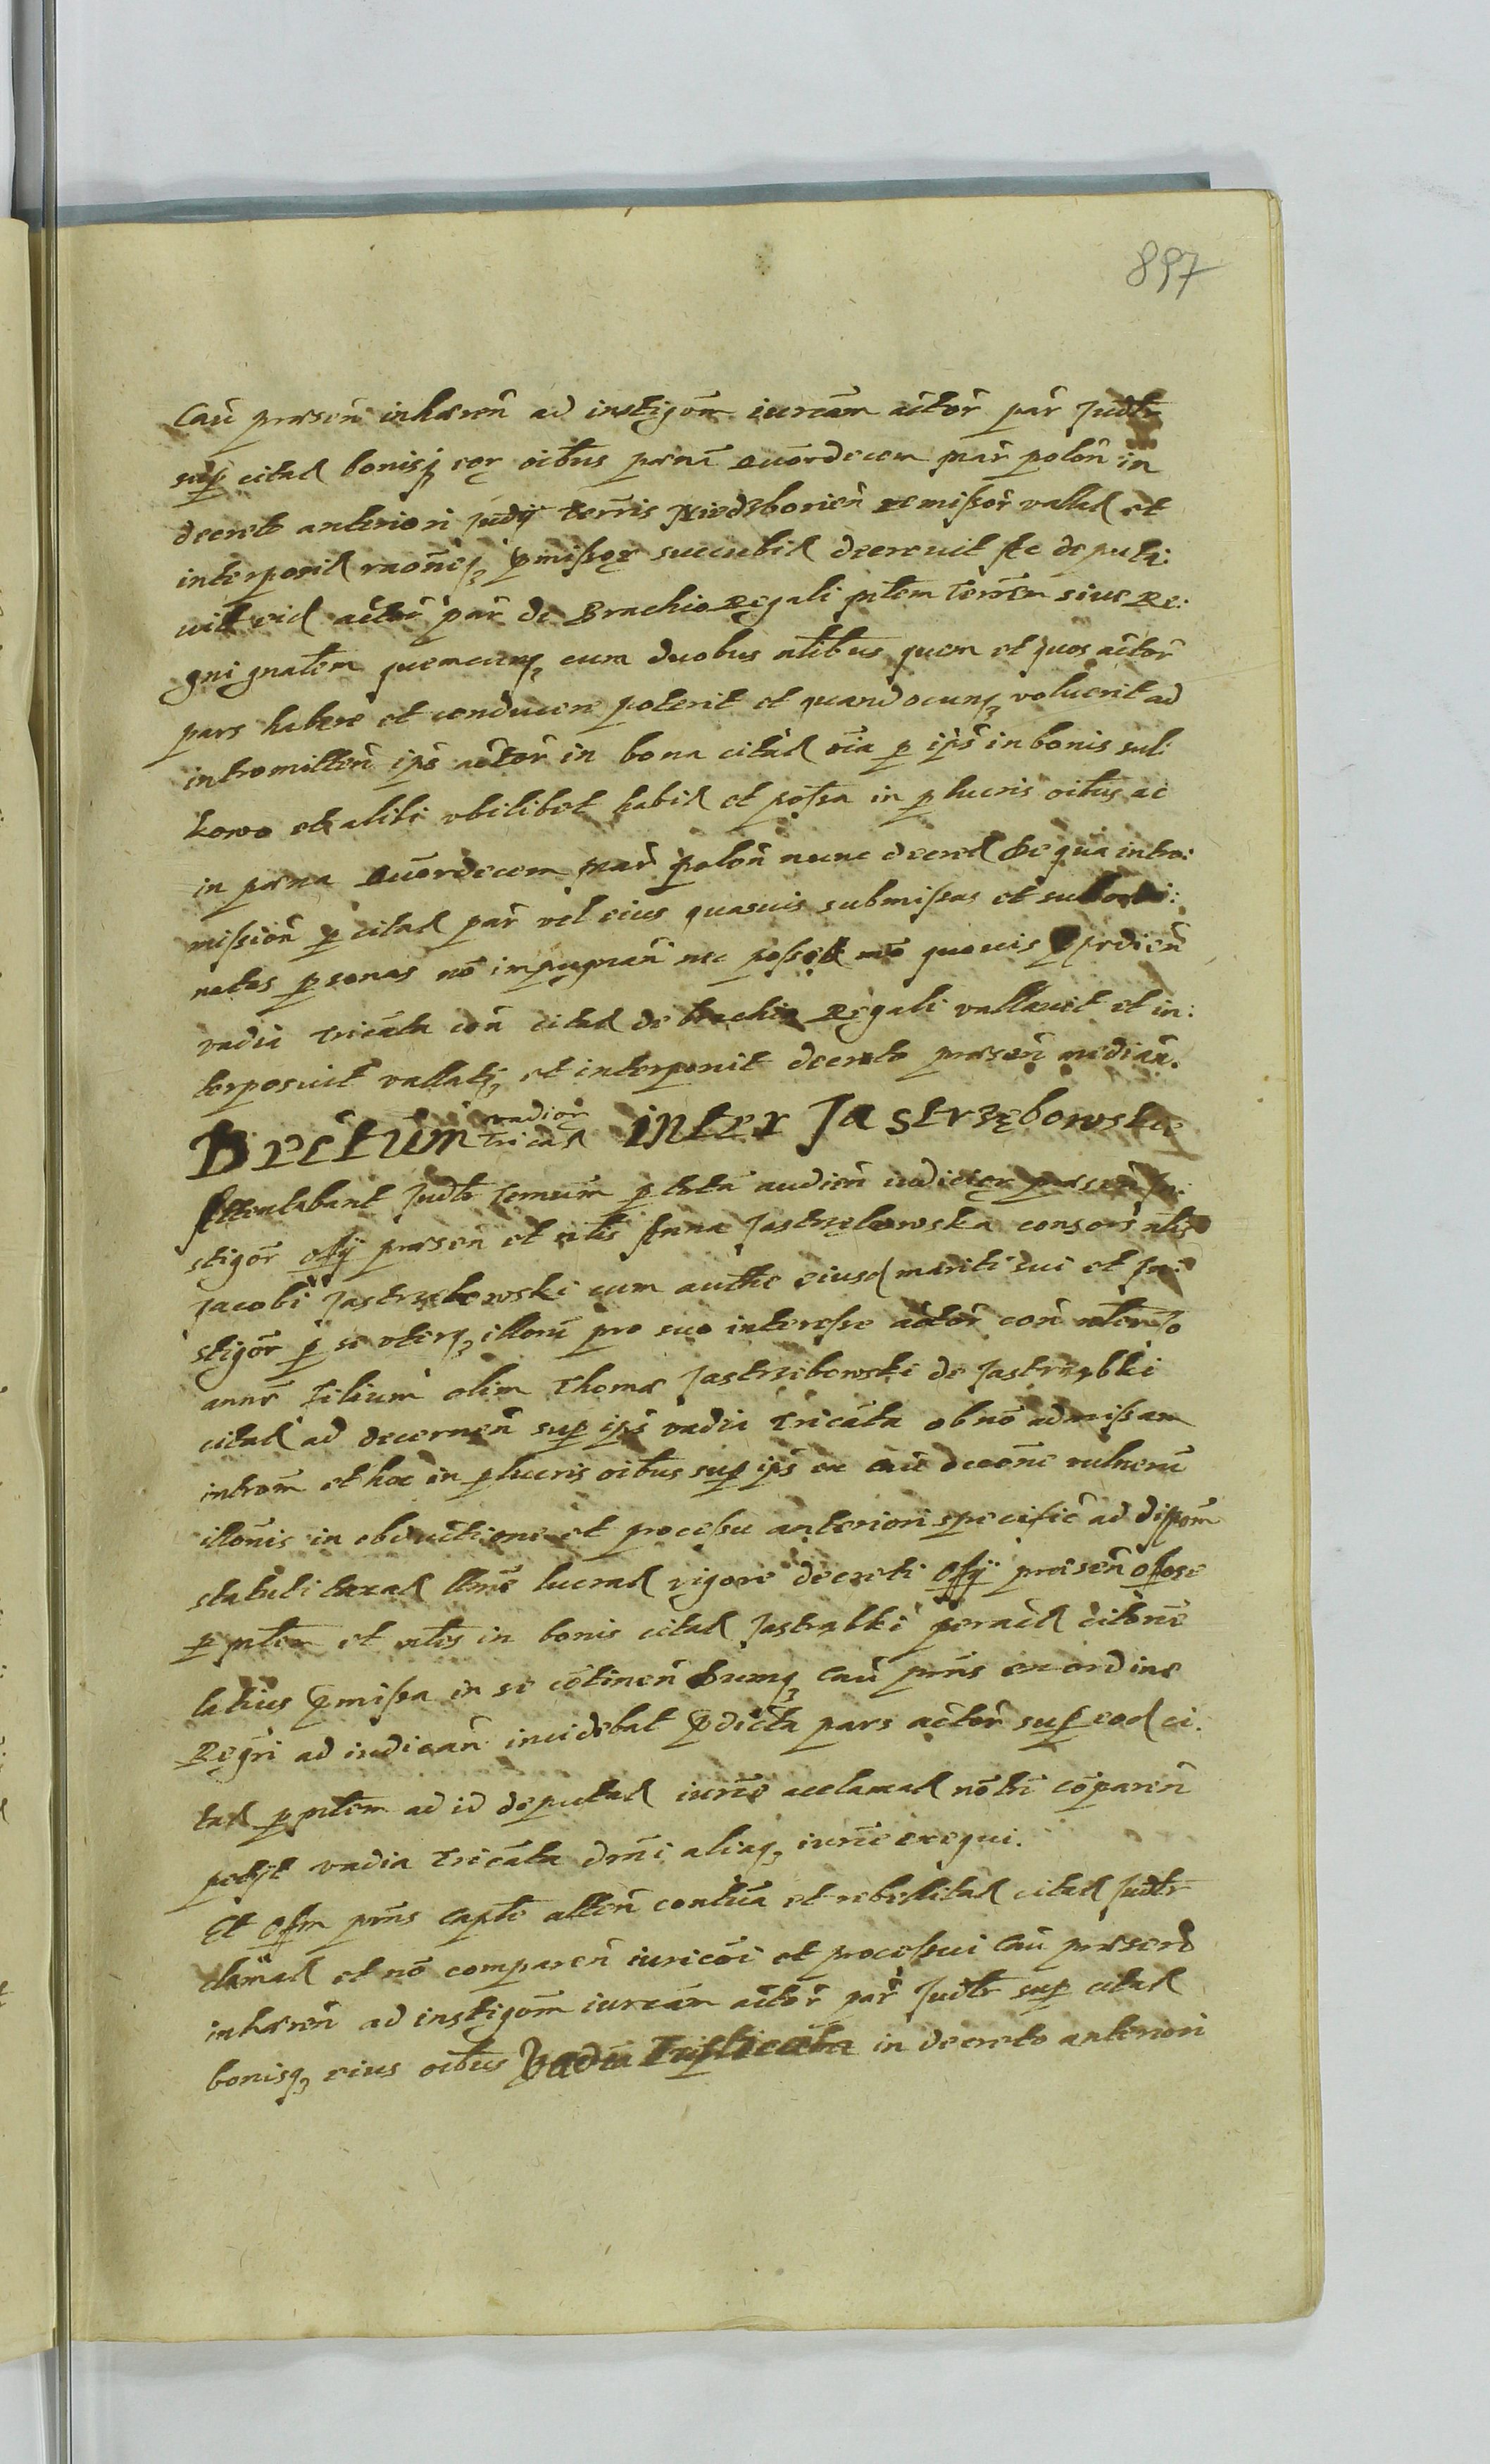 897
Cau præsen̄ inhæren̄ ad instigōm iurēam actor̄ par̄ Judtr
sup citat bonisq eor oibus pœna quordecem mar̄ polon̄ in
decreto anteriori judÿ terris Nidsborien̄ remißor̄ vallat et
interposit raōneq p̄mißor succubit decrevit Ac deputa:
vit eid actor̄ par̄ de Brachio Regali mltem Terr̄em sive Re:
gni gnatem quemcunq cum duobus nltbus quem et quos actor̄
pars habere et conducere poterit et quandocunq voluerit ad
intromitten̄ ips actor̄ in bona citat oīa p ips in bonis sul
kowo et alibi ubilibet habit et poſsa in p lucris oibus ac
in pœna quordecem mar̄ polon̄ nunc decret De qua intro:
mißion̄ p citat par̄ vel eius quasvis submißas et subordi:
natas psonas nō impugnan̄ nec poßet mō quovis p̄pedien̄
vadia tricāta con̄ citat de brachio Regali vallavit et in:
terposuit vallatq et interponit decreto præsen̄ median̄.
Decretum vadior tricat inter Jastrzębowskie
Attentabant Judtr Ternum p tota audien̄ iudicior præsen̄ In:
stigor̄ offÿ præsen̄ et nlis Anna Jastrzębowska consors nlis
Jacobi Jastrzebowski cum authte eiusd mariti sui et In:
stigor̄ p se uterq illorū pro suo intereſse actor̄ con̄ nlem Jo
annē Filium olim Thomæ Jastrzebowski de Jastrząbki
citat ad decernen̄ sup ips vadia tricāta ob nō admißam
introm̄ et hoc in p lucris oibus sup ips ex cau̅ deonē vulneru
illonis in obductione et proceſsu anteriori specific ad dispom̄
statuti taxat ltme lucrat vigore decreti offÿ præsen̄ offose
p mltem et nles in bonis citat Jastrząbki peract citōne
latius p̄mißa in se cōtinen̄ Dumq cau̅ pns ex ordine
Regri ad iudicān̄ incidebat p̄dicta pars actor̄ sup eod ci:
tat p mltem ad id deputat iurīce acclamat nō tn cōparen̄
petÿt vadia tricāta drni aliaq iurīce exequi.
Et Ofm pns capte atten̄ contua et rebellitat citat Judtr
clamat et nō comparen̄ iuricoi et proceſsui cau̅ præsen̄
inhæren̄ ad instigōm iurēam actor̄ par̄ Judtr sup citat
bonisq eius oibus Vadia Triplicata in decreto anteriori